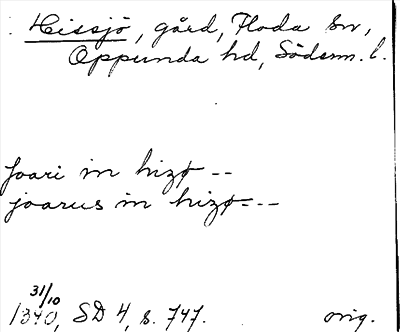 Hissjö, gård, Floda sn,
Oppunda hd, Söderm. l.
Joari in hizø --
joarus in hizø ---
31/10
1340, SD 4, s. 747. orig.